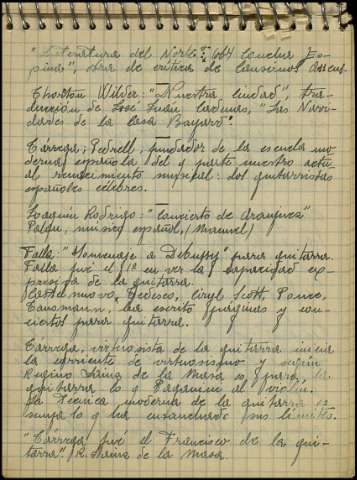 "Literatura del Norte" Concha Es-
pina", obra de crítica de Cansinos Assens
Thorton Wilder: "Nuestra ciudad", tra-
ducción de José Juan Cadenas, "Las Navi-
dades de la Casa Bayard".
Tárrega; Pedrell, fundador de la escuela mo-
derna española del q parte nuestro actu
al renacimiento musical: dos guitarristas
españoles célebres.
Joaquín Rodrigo: "Concierto de Aranjuez"
Palau, músico español, (Manuel)
Falla: "Homenaje a Debussy" para guitarra.
Falla fué el 1º en ver la capacidad ex-
presiva de la guitarra.
Castelnuovo Tedesco, Ciryl Scott, Ponce,
Tansmann, ha escrito y con-
ciertos para guitarra.
Tárrega, virtuosista de la guitarra inicia
la corriente de virtuosismo y según
Regino Sainz de la Maza es para la
guitarra lo q Paganini al violín.
La técnica moderna de la guitarra es
suya lo q ha ensanchado sus límites.
"Tárrega fué el Francisco de la gui-
tarra". R. Sainz de la Maza.